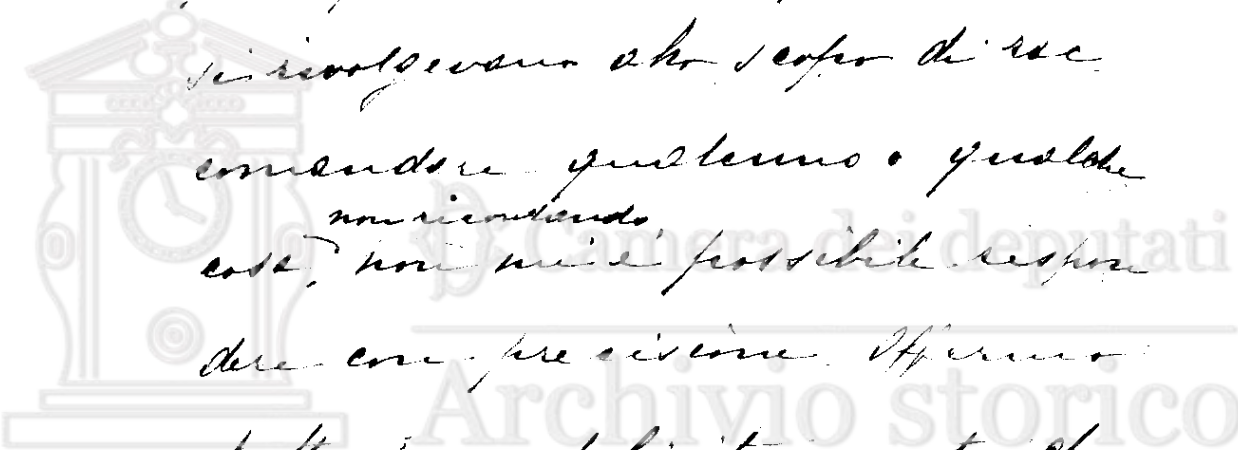 si rivolgevano allo scopo di rac
comandare qualcuno o qualche
non ricordando,
cosa, non mi è possibile rispon
dere con precisione. Affermo
Camera dei deputati
Archivio storico